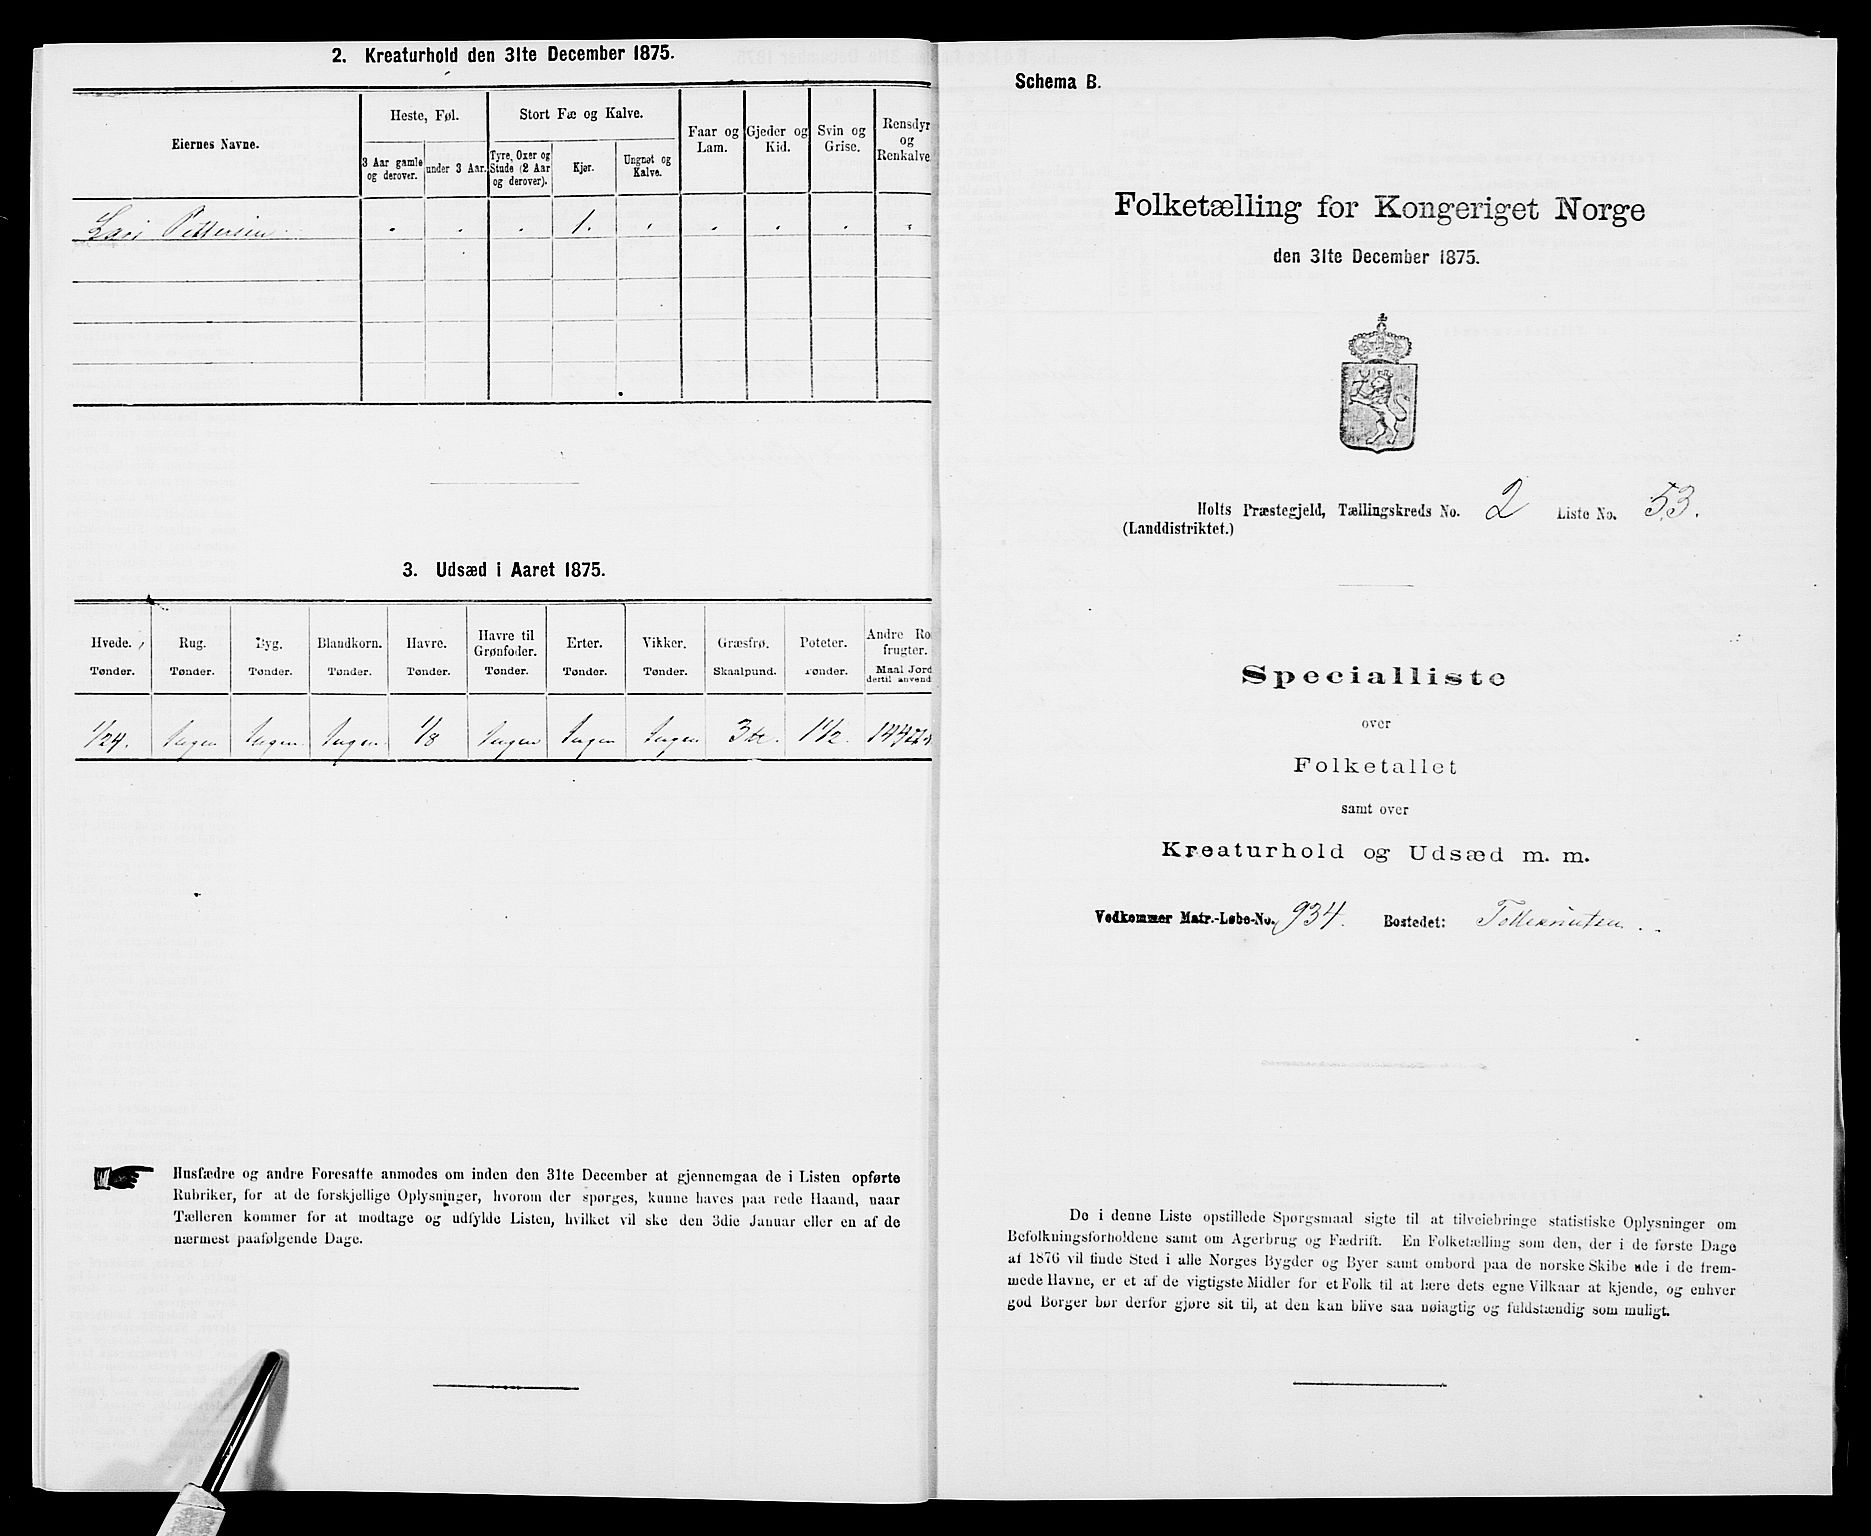 2. Kreaturhold den 31te December 1875.
Eiernes Navne.
Heste, Føl.
3 Aar gamle og derover.
under 3 Aar.
Stort Fæ og Kalve.
Tyre, Oxer og Stude (2 Aar og derover).
Kjør.
Ungnøt og Kalve.
Faar og Lam.
Gjeder og Kid.
Svin og Grise.
Rensdyr og Renkalve
Lars Pettersen . . . 1. . . . . .
3. Udsæd i Aaret 1875.
Hvede. Rug. Byg. Blandkorn. Havre. Havre til Grønfoder. Erter. Vikker. Græsfrø. Poteter. Andre Ro frugter.
Tønder. Tønder. Tønder. Tønder. Tønder. Tønder. Tønder. Tønder. Skaalpund. Tønder. Maal Jord dertil anvend
1/24. Ingen Ingen Ingen 1/8 Ingen Ingen Ingen 3 1 1/2.
Husfædre og andre Foresatte anmodes om inden den 31te December at gjennemgaa de i Listen opførte
Rubriker, for at de forskjellige Oplysninger, hvorom der spørges, kunne haves paa rede Haand, naar
Tælleren kommer for at modtage og udfylde Listen, hvilket vil ske den 3die Januar eller en af de
nærmest paafølgende Dage.
Schema B.
Folketælling for Kongeriget Norge
den 31te December 1875.
Holts Præstegjeld, Tællingskreds No. 2 Liste No. 53.
(Landdistriktet.)
Specialliste
over
Folketallet
samt over
Kreaturhold og Udsæd m. m.
Vedkommer Matr.-Løbe-No. 934. Bostedet:
De i denne Liste opstillede Spørgsmaal sigte til at tilveiebringe statistiske Oplysninger om
Befolkningsforholdene samt om Agerbrug og Fædrift. En Folketælling som den, der i de første Dage
af 1876 vil finde Sted i alle Norges Bygder og Byer samt ombord paa de norske Skibe ude i de frem-
mede Havne, er et af de vigtigste Midler for et Folk til at lære dets egne Vilkaar at kjende, og enhver
god Borger bør derfor gjøre sit til, at den kan blive saa nøiagtig og fuldstændig som muligt.